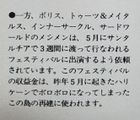 ●一方、ボリス、トゥーツ&メイタ
ルズ、インナーサークル、サードワ
ールドの4メンメンは、5月にサン
タルチアで3週間に渡って行なわれる
フェスティバルに出演するよう依頼
されています。このフェスティバル
の収益金は、昨年5月に起きたハリ
ケーンでボロボロになってしまった
この島の再建に使われます。